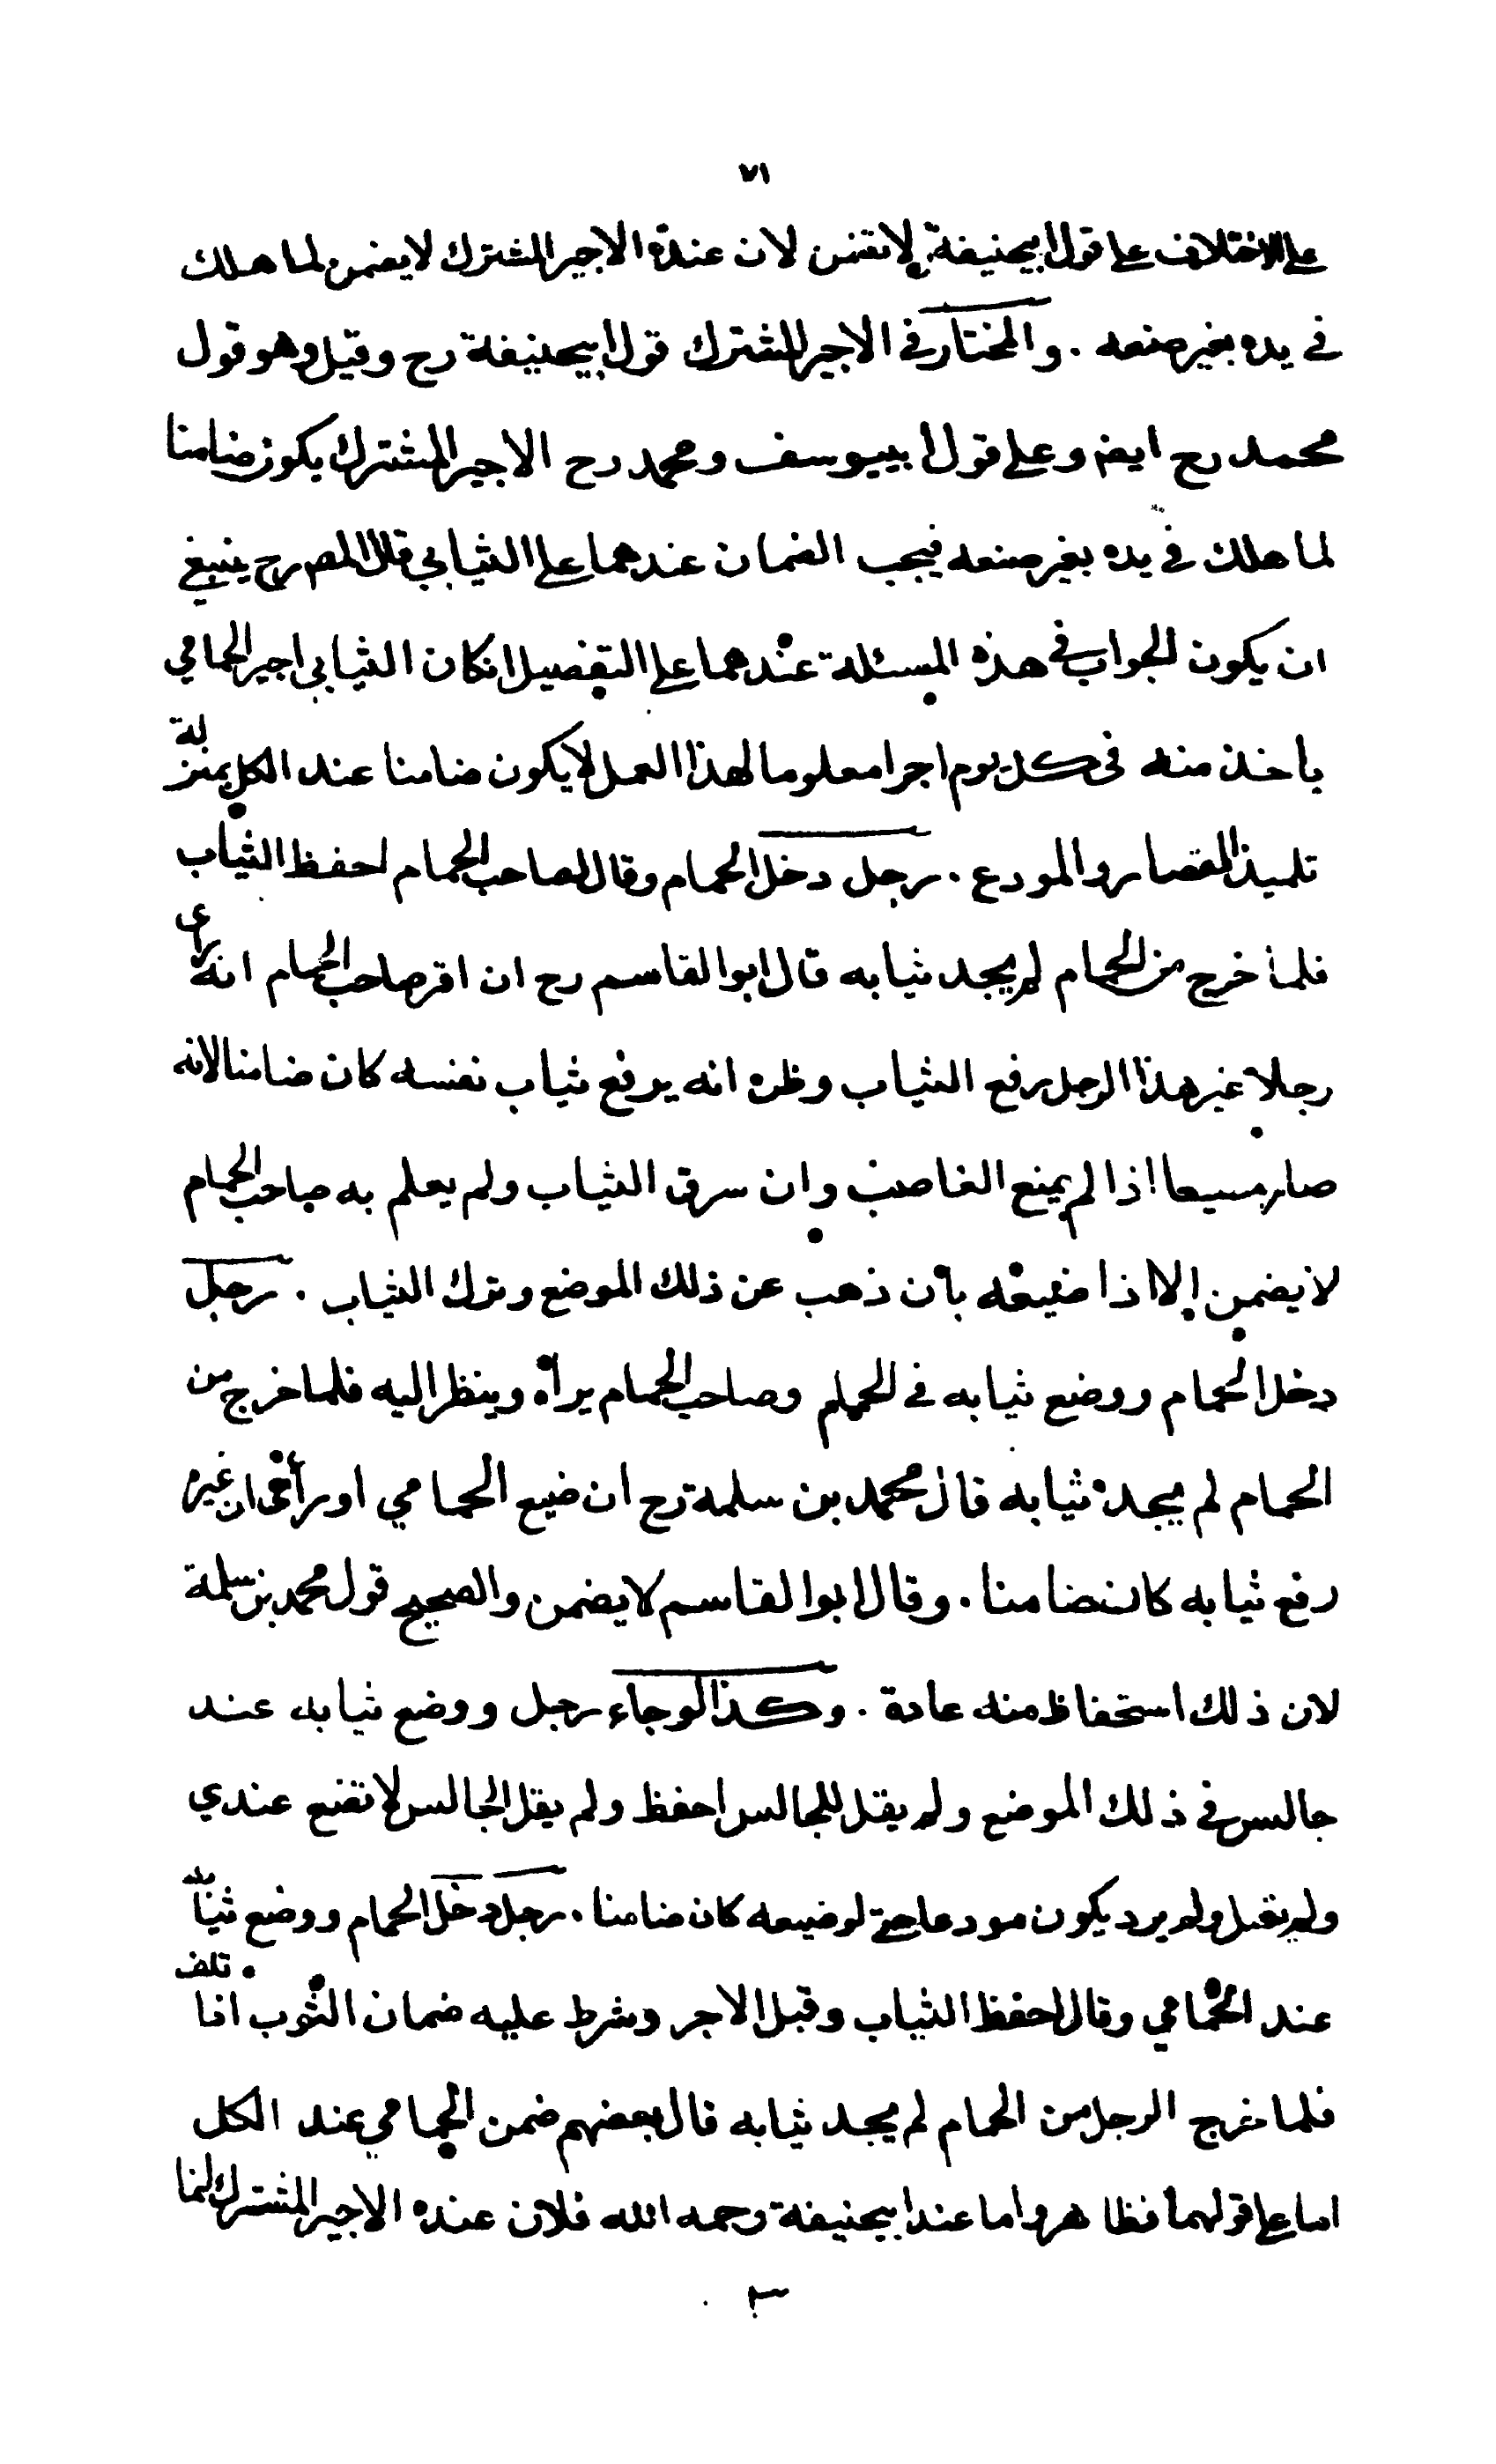 ٧١
على الاختلاف على قول ابيحنيفة لا تضمن لان عنده الاجير المشترك لا يضمن لما هلك
في يده بغير صنعه . والمختار في الاجير المشترك قول ابيحنيفة رح وقيل وهو قول
محمد رح ايضا وعلى قول ابييوسف ومحمد رح الاجير المشترك يكون ضامنا
لما هلك في يده بغير صنعه فيجب الضمان عندهما على الثيابي قال المص رح ينبغي
ان يكون الجواب في هذه المسئلة عندهما على التفصيل انكان الثيابي اجير الحمامي
ياخذ منه في كل يوم اجرا معلوما لهذا العمل لا يكون ضامنا عند الكل بمنزلة
تلميذ القصار والمودع . رجل دخل الحمام وقال لصاحب الحمام احفظ الثياب
فلما خرج من الحمام لم يجد ثيابه قال ابو القاسم رح ان اقر صاحب الحمام انه راى
رجلا غير هذا الرجل رفع الثياب وظن انه يرفع ثياب نفسه كان ضامنا لانه
صار مسيعا اذا لم يمنع الغاصب وان سرق الثياب ولم يعلم به صاحب الحمام
لا يضمن الا اذا ضيعه بان ذهب عن ذلك الموضع وترك الثياب . رجل
دخل الحمام ووضع ثيابه في الحمام وصاحب الحمام يراه وينظر اليه فلما خرج من
الحمام لم يجد ثيابه قال محمد بن سلمة رح ان ضيع الحمامي او رأى ان غيره
رفع ثيابه كان ضامنا . وقال ابو القاسم لا يضمن والصحيح قول محمد بن سلمة
لان ذلك استحفاظ منه عادة . وكذا لو جاء رجل ووضع ثيابه عند
جالس في ذلك الموضع ولم يقل للجالس احفظ ولم يقل الجالس لا تضع عندي
ولم يقبل ولم يرد يكون مودعا حتى لو ضيعه كان ضامنا . رجل دخل الحمام ووضع ثيابه
عند الحمامي وقال احفظ الثياب وقبل الاجر وشرط عليه ضمان الثوب اذا تلف
فلما خرج الرجل من الحمام لم يجد ثيابه قال بعضهم ضمن الحمامي عند الكل
اما على قولهما فظاهر واما عند ابيحنيفة رحمه الله فلان عنده الاجير المشترك انما